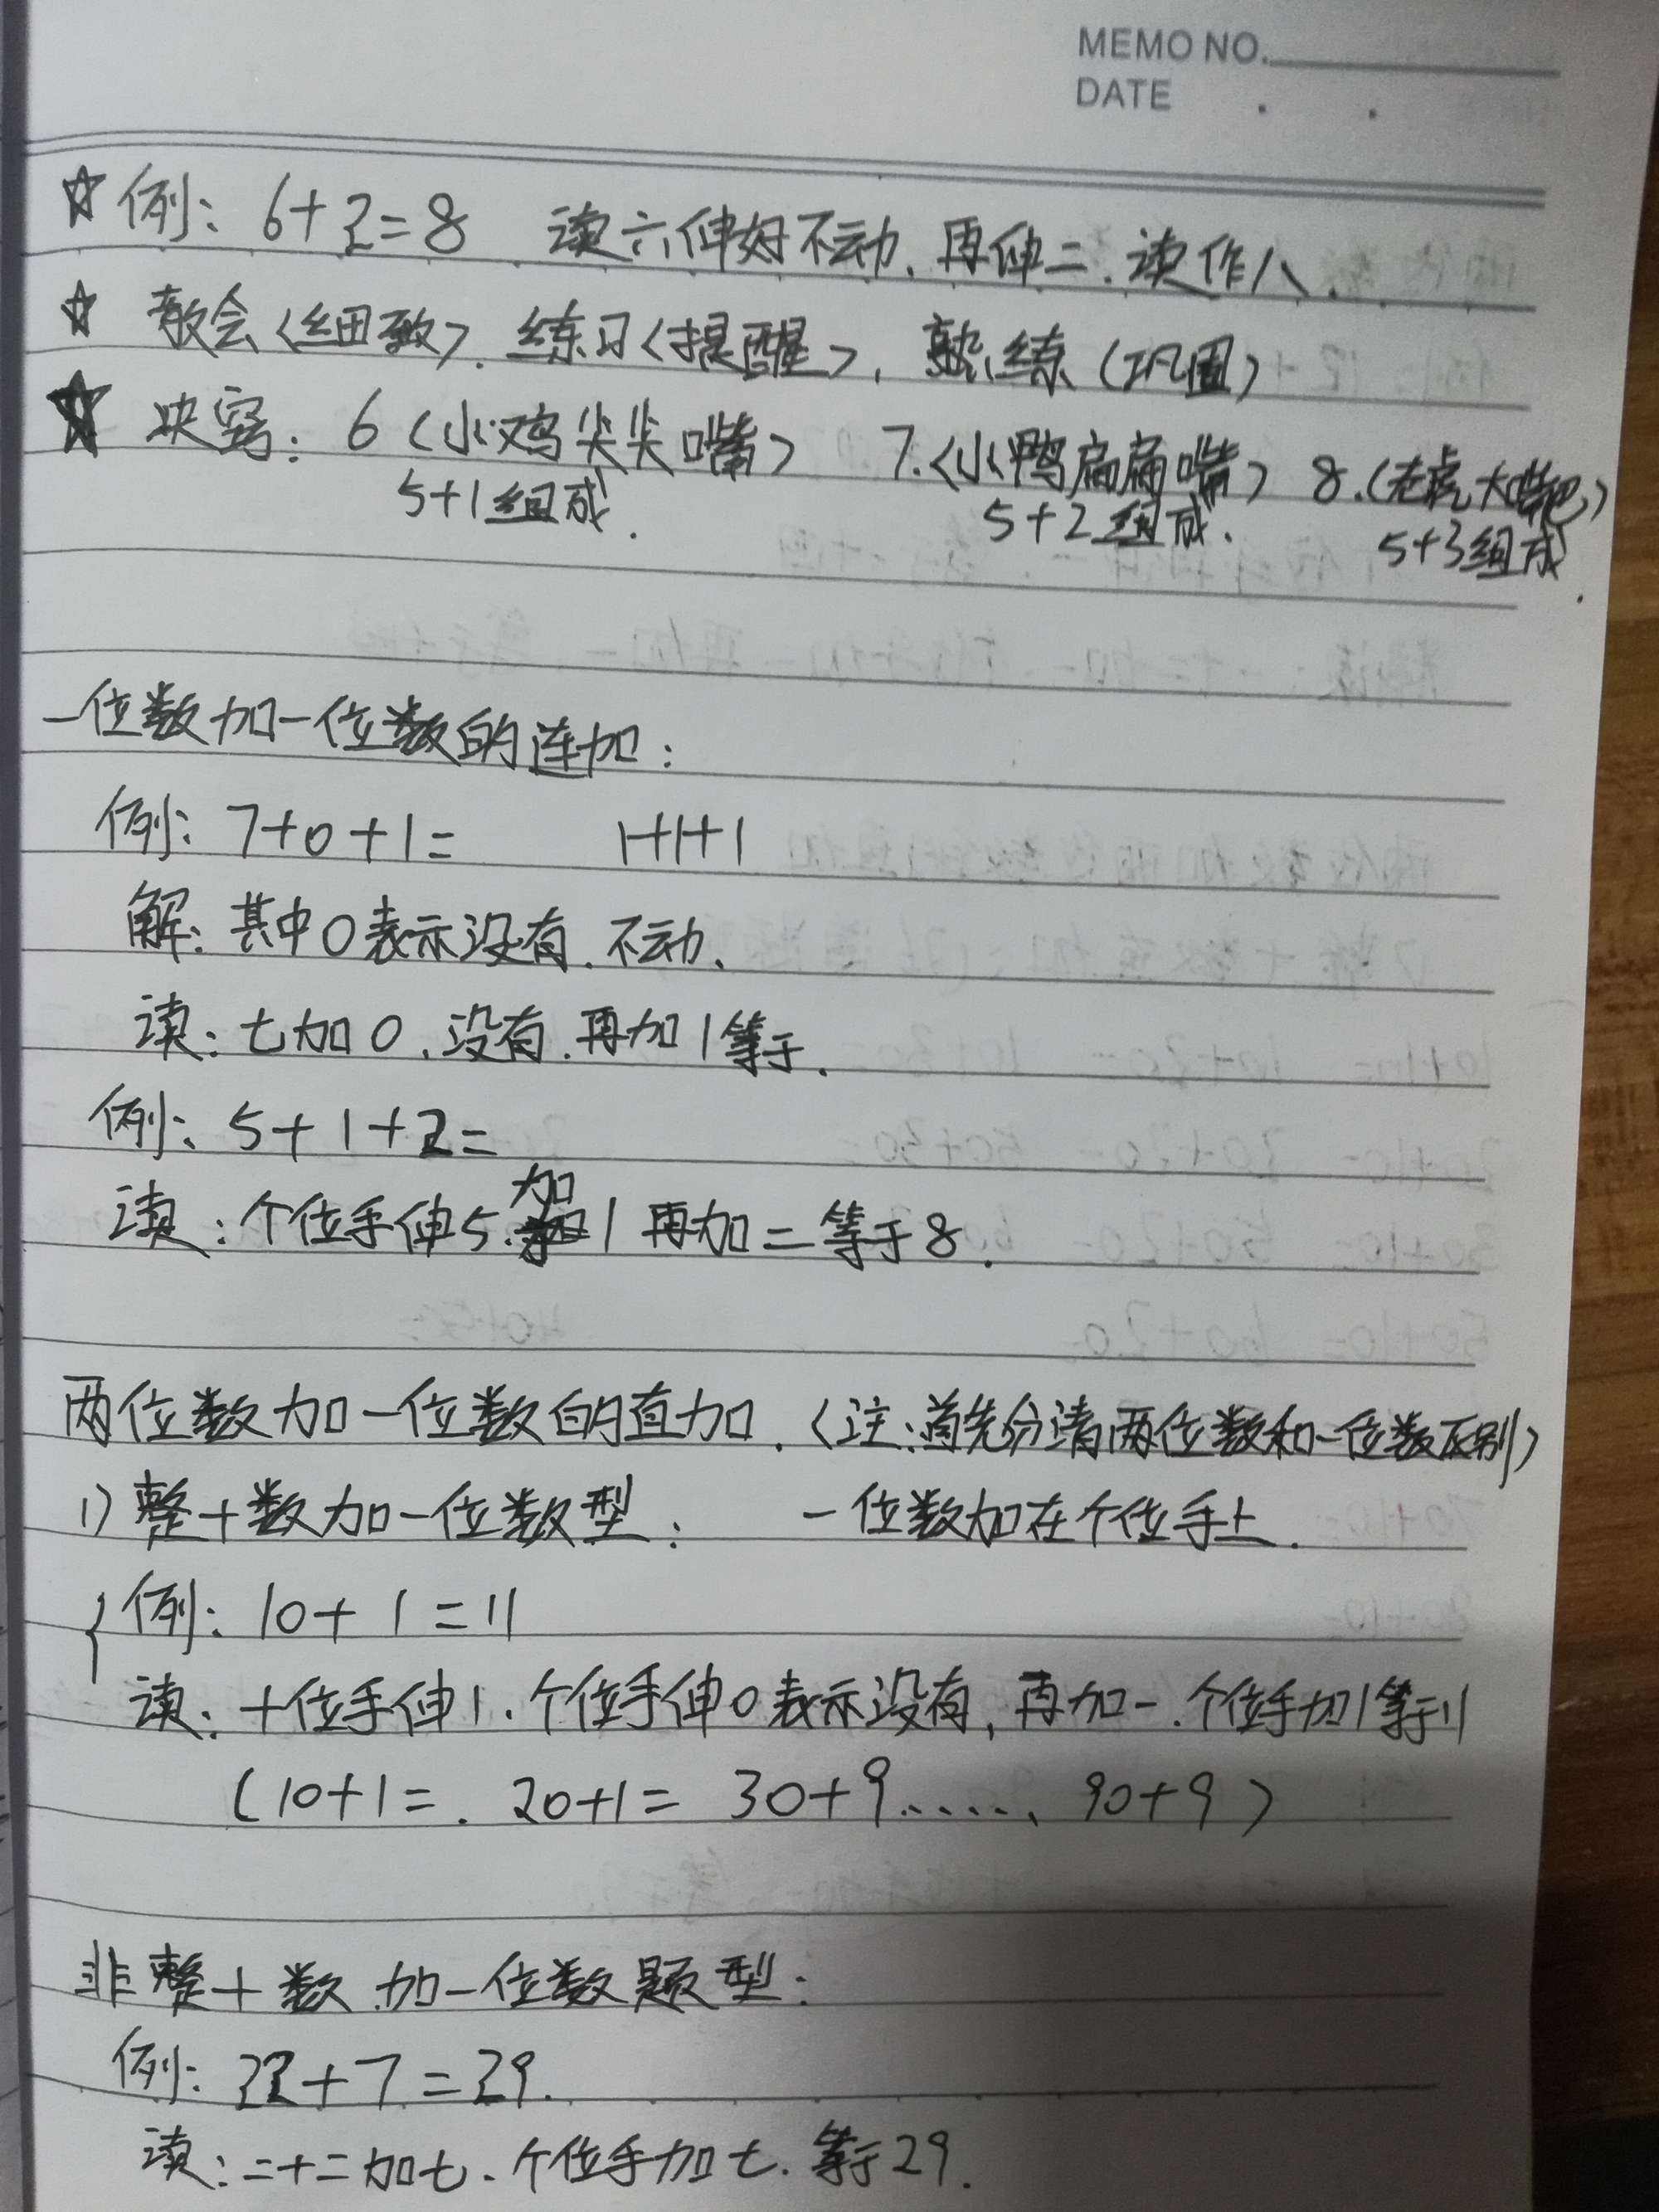 MEMO NO.
DATE . .
☆例: 6+2=8 读六伸好不动、再伸二、读作八、
☆ 教会〈细致〉、练习〈提醒〉, 熟练(巩固)
☆ 诀窍: 6〈小鸡尖尖嘴〉 7.〈小鸭扁扁嘴〉 8.(老虎大嘴巴)
5+1组成. 5+2组成. 5+3组成.
一位数加一位数的连加:
例: 7+0+1= 1+1+1
解: 其中0表示没有. 不动、
读: 七加0.没有.再加1等于.
例: 5+1+2=
读: 个位手伸5.加1再加二等于8.
两位数加一位数的直加.〈注:首先分清两位数和一位数区别〉
1) 整十数加一位数型: 一位数加在个位手上.
例: 10+1=11
读: 十位手伸1.个位手伸0表示没有, 再加一.个位手加1等于11
(10+1=. 20+1= 30+9......、90+9)
非整十数加一位数题型:
例: 22+7=29.
读: 二十二加七.个位手加七.等于29.